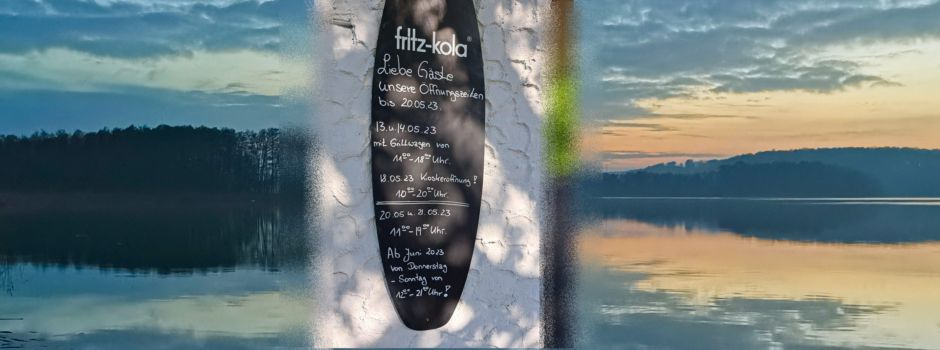 fritz-kola®
Liebe Gäste
unsere Öffnungszeiten
bis 20.05.23.
13. u. 14.05.23
mit Grillwagen von
11⁰⁰-18⁰⁰ Uhr.
18.05.23 Kioskeröffnung!
10⁰⁰-20⁰⁰ Uhr.
20.05 u. 21.05.23
11⁰⁰-19⁰⁰ Uhr.
Ab Juni 2023
von Donnerstag
- Sonntag von
12⁰⁰-21⁰⁰ Uhr!